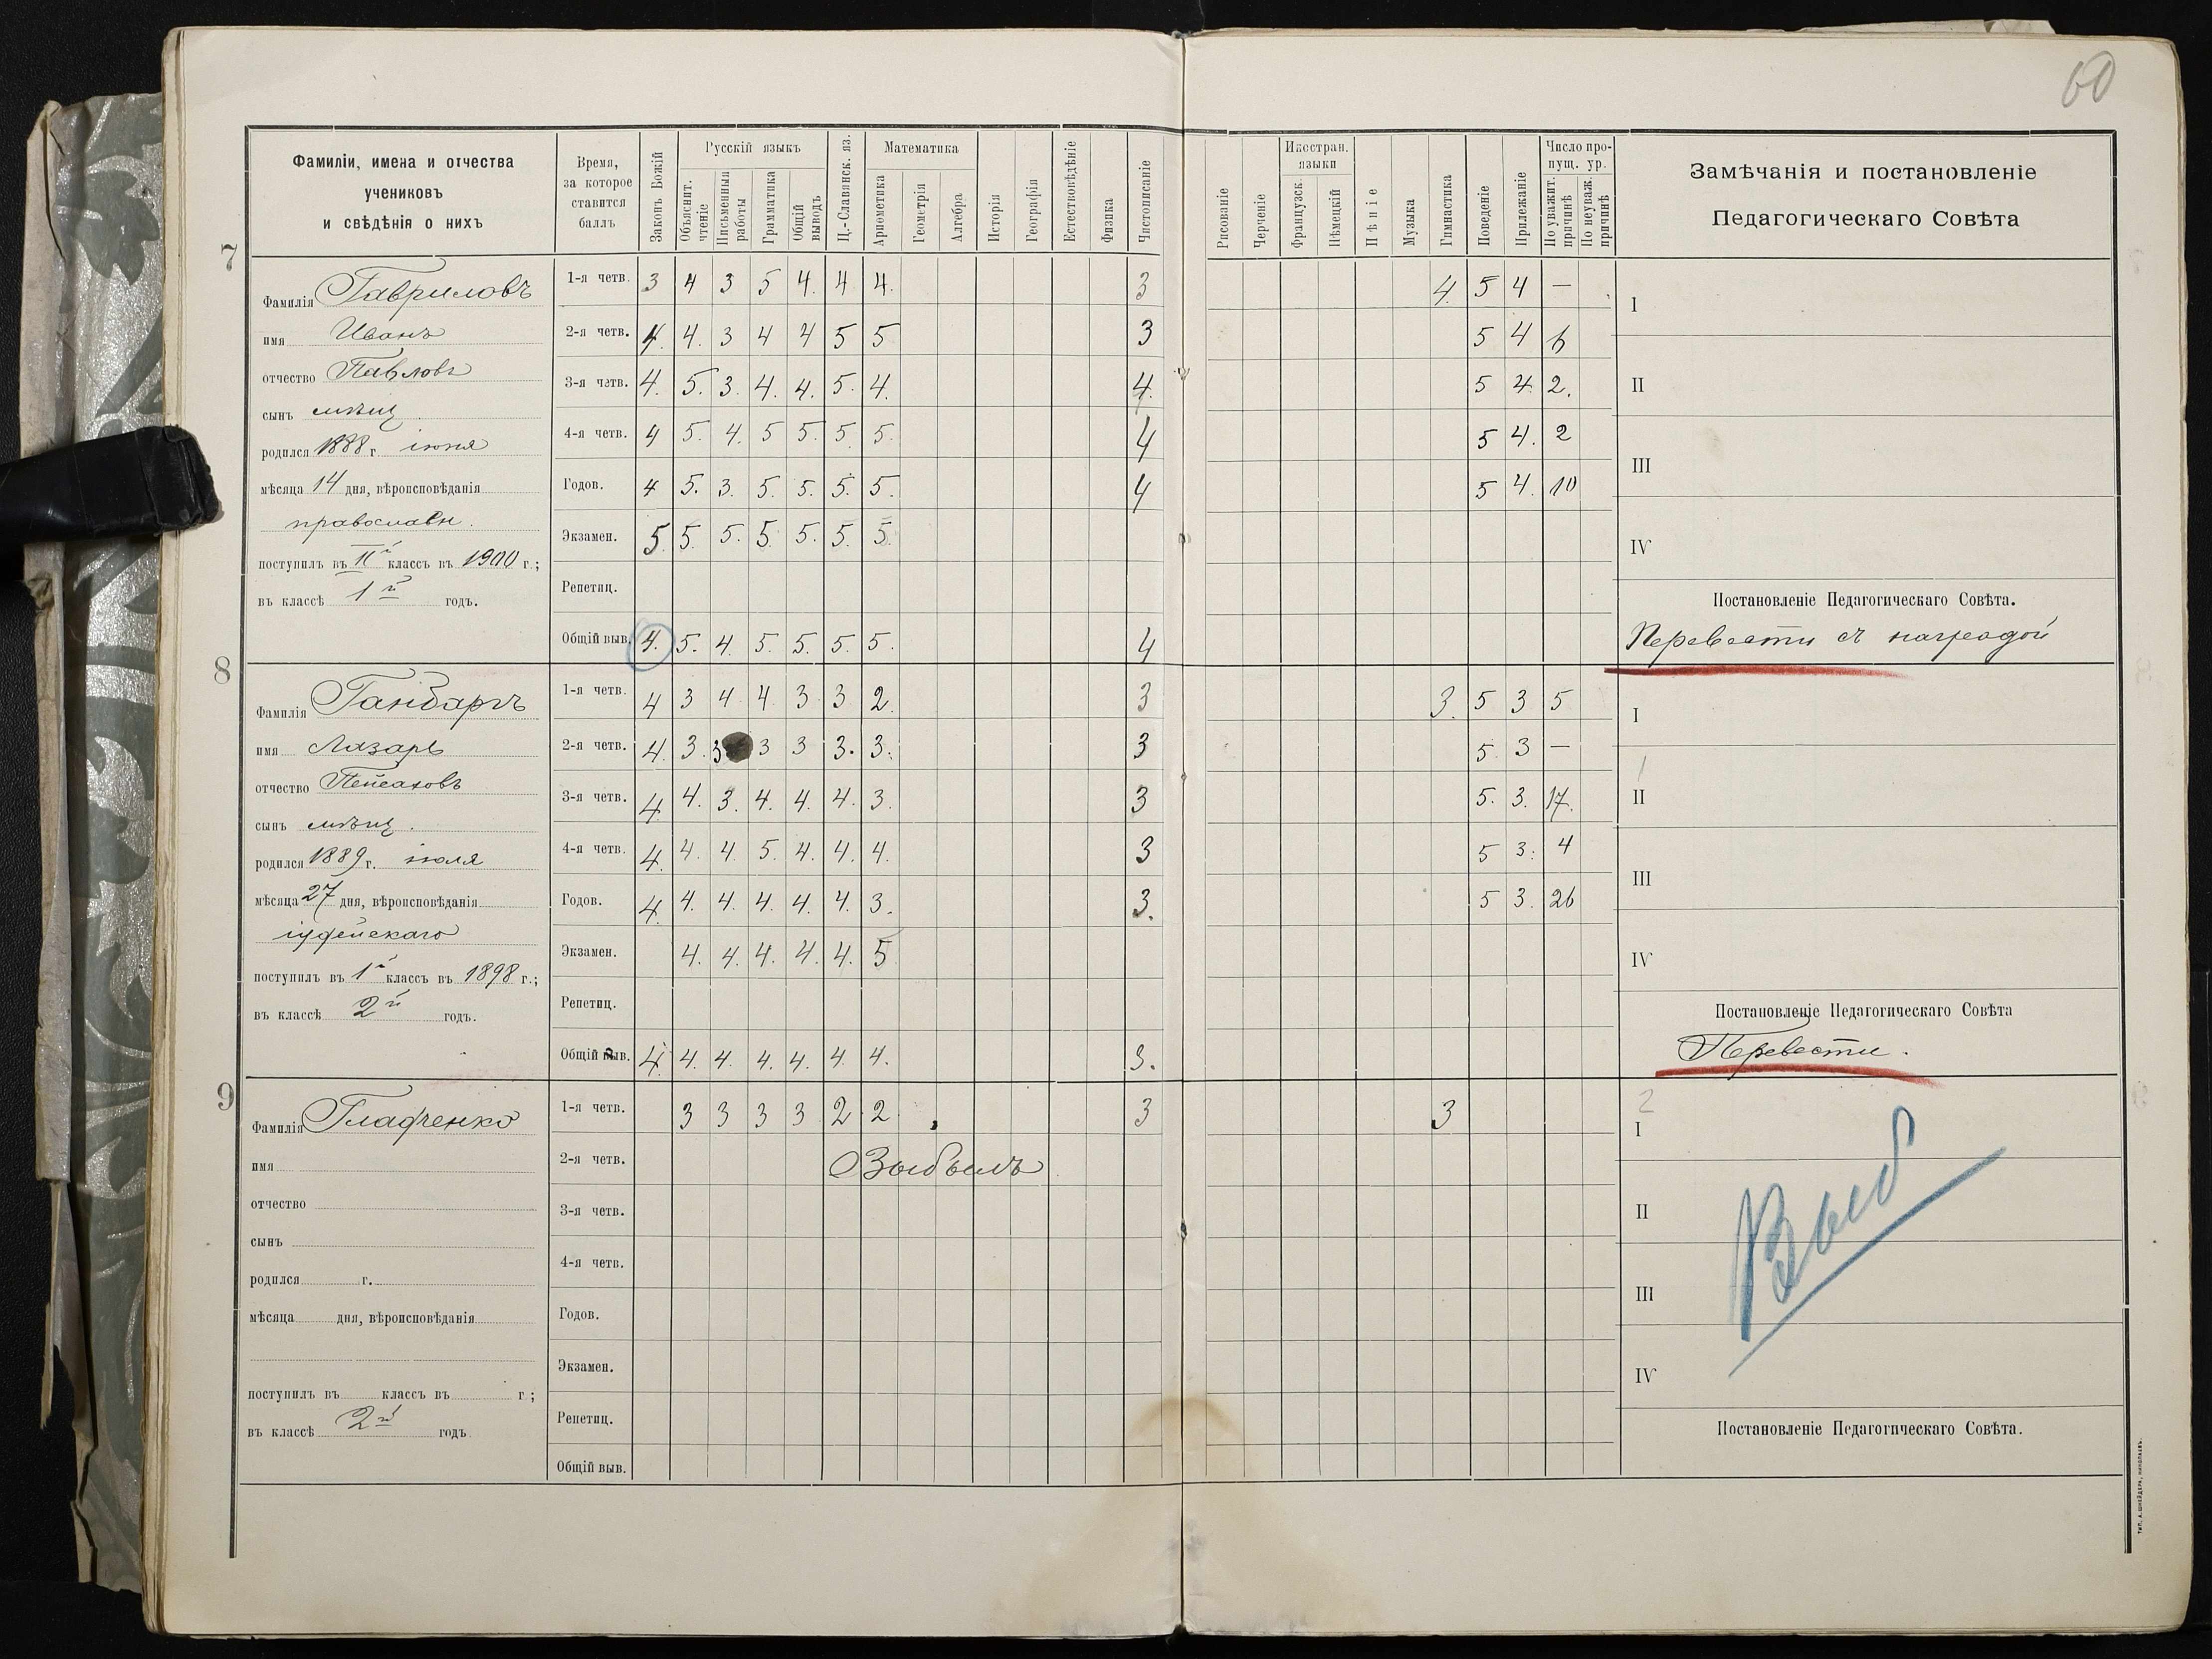 60
Фамиліи, имена и отчества
учениковъ
и свѣдѣнія о нихъ
Время,
за которое
ставится
баллъ
Законъ Божій
Русскій языкъ
Объяснит. чтеніе
Письменныя работы
Грамматика
Общій выводъ
Ц.-Славянск. яз.
Математика
Ариѳметика
Геометрія
Алгебра
Исторія
Географія
Естествовѣдѣніе
Физика
Чистописаніе
Рисованіе
Черченіе
Иностран. языки
Французск.
Нѣмецкій
Пѣніе
Музыка
Гимнастика
Поведеніе
Прилежаніе
Число пропущ. ур.
По уважит. причинѣ
По неуваж. причинѣ
Замѣчанія и постановленіе
Педагогическаго Совѣта
7
Фамилія Гавриловъ
имя Иванъ
отчество Павловъ
сынъ мѣщ.
родился 1888 г. іюня
мѣсяца 14 дня, вѣроисповѣданія
православн.
поступилъ въ IIй классъ въ 1900 г.;
въ классѣ 1й годъ.
1-я четв. 3 4 3 5 4. 4 4. 3 4. 5 4 —
2-я четв. 4. 4. 3 4 4 5 5 3 5 4 6
3-я четв. 4. 5. 3. 4. 4. 5. 4. 4. 5 4. 2.
4-я четв. 4 5. 4. 5 5. 5. 5. 4 5 4. 2
Годов. 4 5. 3. 5. 5. 5. 5. 4 5 4. 10
Экзамен. 5. 5. 5. 5. 5. 5. 5.
Репетиц.
Общій выв. 4. 5. 4. 5. 5. 5. 5. 4
I
II
III
IV
Постановленіе Педагогическаго Совѣта.
Перевести съ наградой
8
Фамилія Ганбаргъ
имя Лазарь
отчество Пейсаховъ
сынъ мѣщ.
родился 1889 г. іюля
мѣсяца 27 дня, вѣроисповѣданія
іудейскаго
поступилъ въ 1й классъ въ 1898 г.;
въ классѣ 2й годъ.
1-я четв. 4 3 4 4 3 3 2. 3 3. 5 3 5
2-я четв. 4. 3. 3 3 3 3. 3. 3 5. 3 —
3-я четв. 4. 4. 3. 4. 4. 4. 3. 3 5. 3. 17.
4-я четв. 4. 4. 4. 5. 4. 4. 4. 3 5 3. 4
Годов. 4. 4. 4. 4. 4. 4. 3. 3. 5 3. 26
Экзамен. 4. 4. 4. 4. 4. 5
Репетиц.
Общій выв. 4. 4. 4. 4. 4. 4. 4. 3.
I
1
II
III
IV
Постановленіе Педагогическаго Совѣта
Перевести.
9
Фамилія Гладченко
имя
отчество
сынъ
родился г.
мѣсяца дня, вѣроисповѣданія
поступилъ въ классъ въ г.;
въ классѣ 2й годъ
1-я четв. 3 3 3 3 2 2 3 3
2-я четв. Выбылъ
3-я четв.
4-я четв.
Годов.
Экзамен.
Репетиц.
Общій выв.
2
I
II
III
IV
Выб
Постановленіе Педагогическаго Совѣта.
ТИП. А. ШНЕЙДЕРА, НИКОЛАЕВЪ.